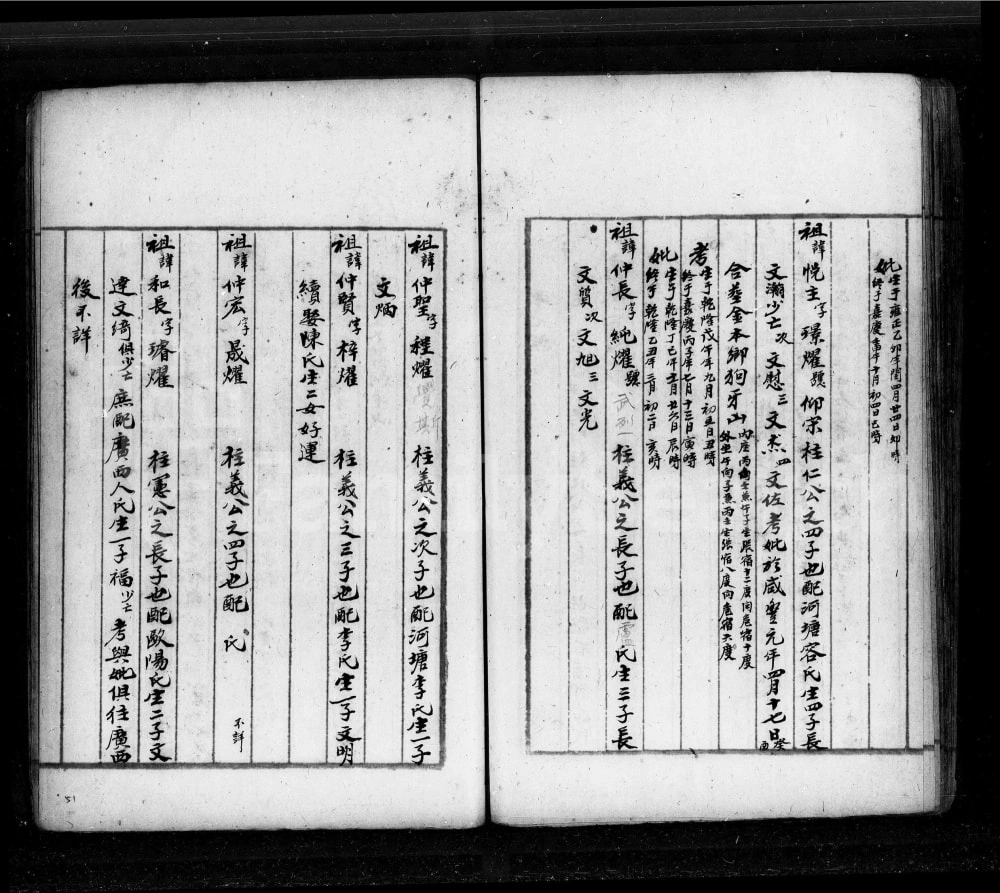 妣生于雍正乙卯年閏四月廿四日卯時
終于嘉慶 年十月初四日巳時
祖諱悅主字璟燿號仰宗柱仁公之四子也配河塘容氏生四子長
文瀚少亡次文慰三文杰四文佐考妣於咸豐元年四月十七日癸酉
合葬金本鄉狗牙山內座丙 兼午子坐張宿十二度向危宿十度
外坐午向子兼丙壬坐張宿八度向危宿六度
考生于乾隆戊午年九月初五日丑時
終于嘉慶丙子年七月十三日寅時
妣生于乾隆丁巳年十二月廿六日辰時
終于乾隆乙丑年三月初二日亥時
祖諱仲長字純燿號武烈一柱義公之長子也配盧氏生三子長
文質次文旭三文光
祖諱仲聖字 燿 柱義公之次子也配河塘李氏生一子
文炳
祖諱仲賢字梓燿 柱義公之三子也配李氏生一子文明
續娶陳氏生二女好運
祖諱仲宏字晟燿 柱義公之四子也配 氏 不詳
祖諱和長字璿燿 柱憲公之長子也配歐陽氏生二子文
達文綺俱少亡庶配廣西人氏生一子福少亡考與妣俱往廣西
後不詳
51